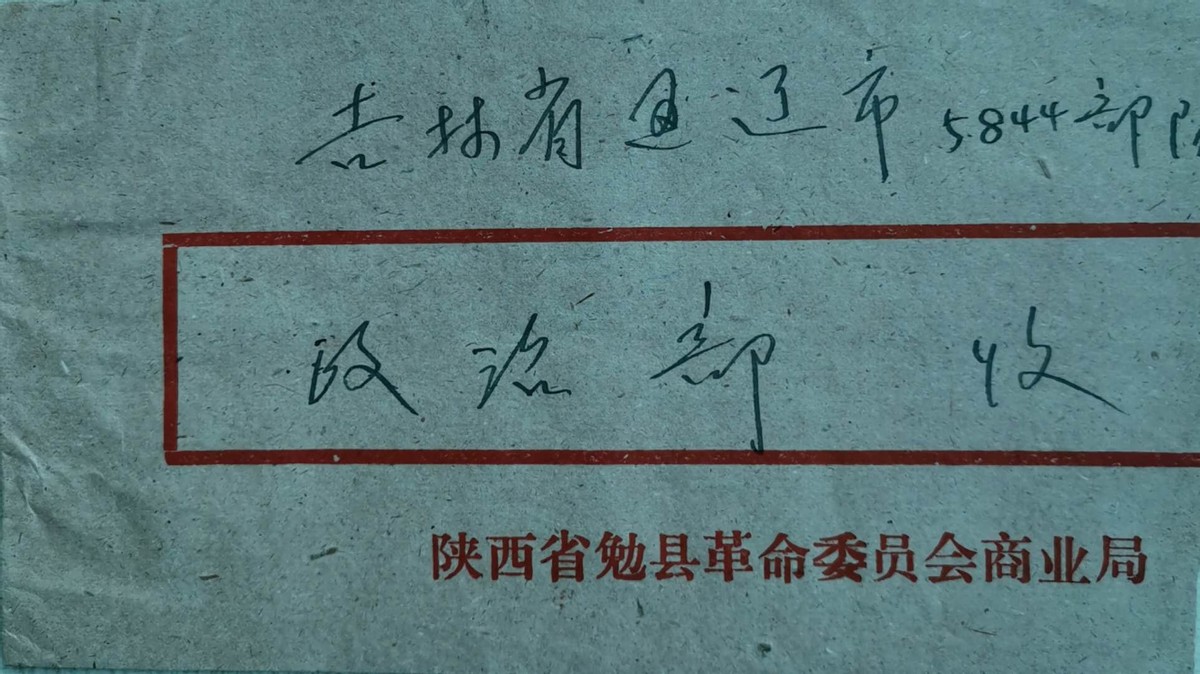 吉林省通辽市5844部队
政治部 收
陕西省勉县革命委员会商业局